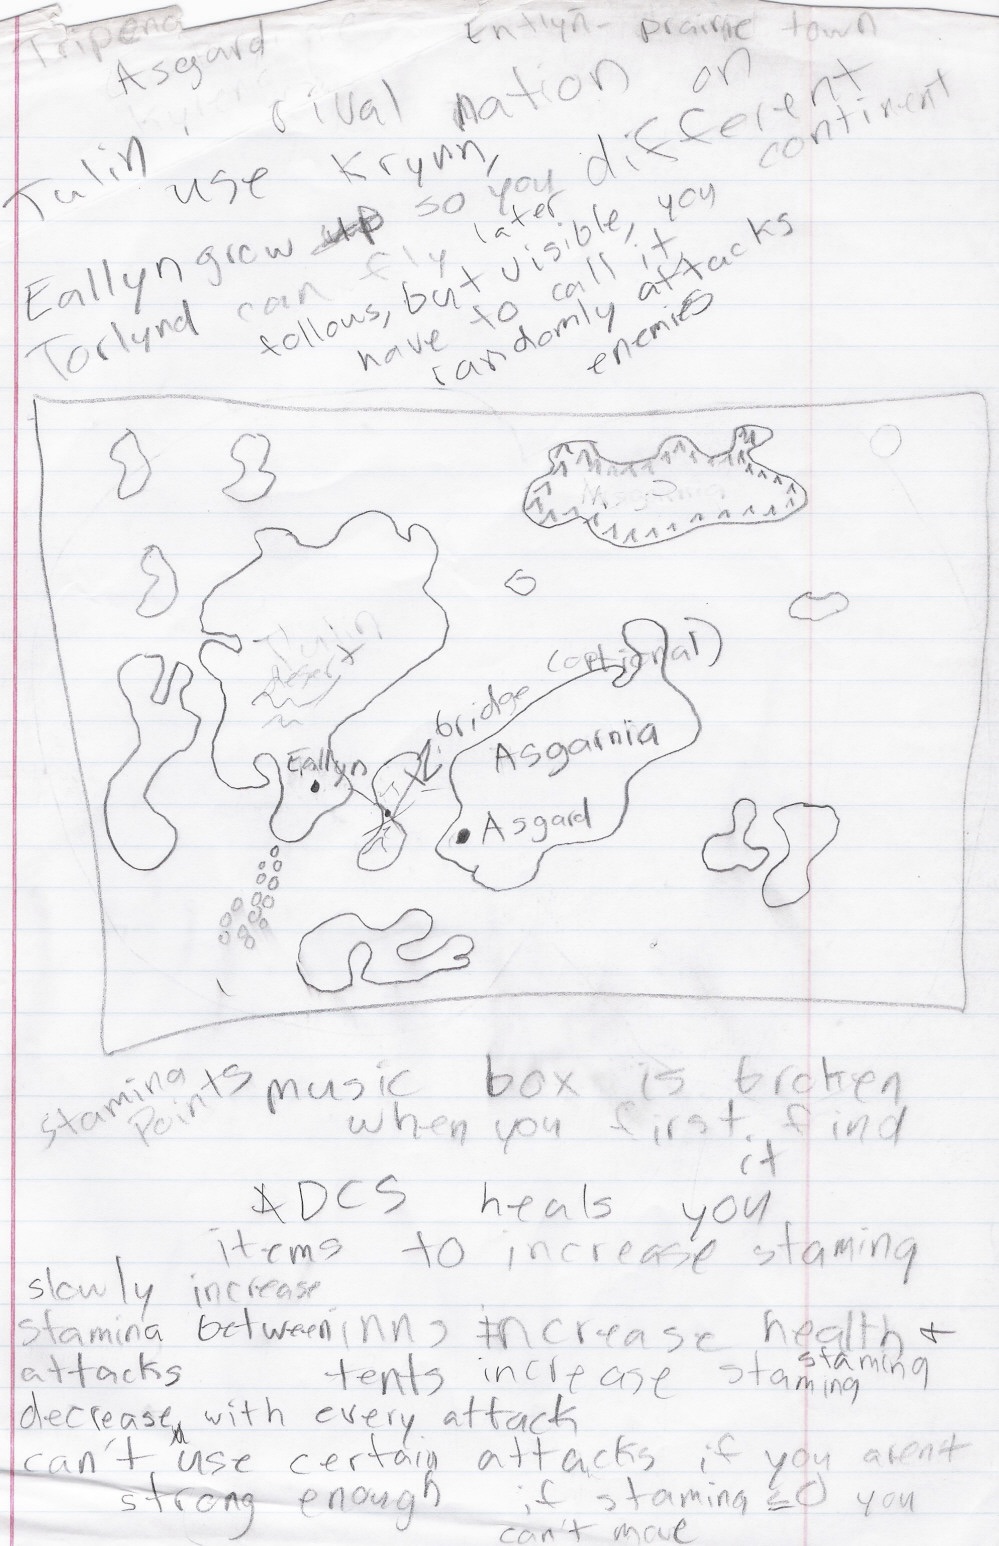 Tripena
Entlyn- prairie town
Asgard
Tulin rival nation on
different
continent
use Krynn,
Eallyn grow up so you
Torlynd can fly later
follows, but visible, you
have to call it
randomly attacks
enemies
Tulin
desert
(optional)
bridge
Asgarnia
Eallyn
Asgard
staming
points
music box is broken
when you first find
it
ADCS heals you
items to increase staming
slowly increase
stamina between
attacks
inns increase health +
staming
tents increase staming
decrease with every attack
can't use certain attacks if you arent
strong enough if staming ≤0 you
can't move